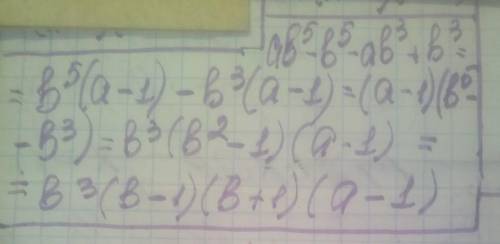 ab⁵-b⁵-ab³+b³=
=b⁵(a-1)-b³(a-1)=(a-1)(b⁵-
-b³)=b³(b²-1)(a-1)=
=b³(b-1)(b+1)(a-1)